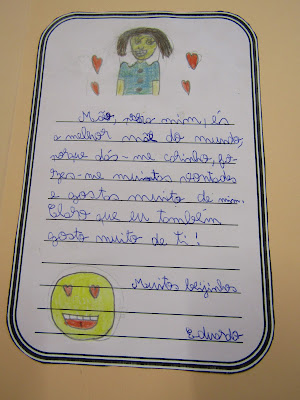 Mãe, para mim, és
a melhor mãe do mundo,
porque dás-me carinho, fa
zes-me muitas vontades
e gostas muito de mim.
Claro que eu também
gosto muito de ti!
Muitos beijinhos
Eduardo